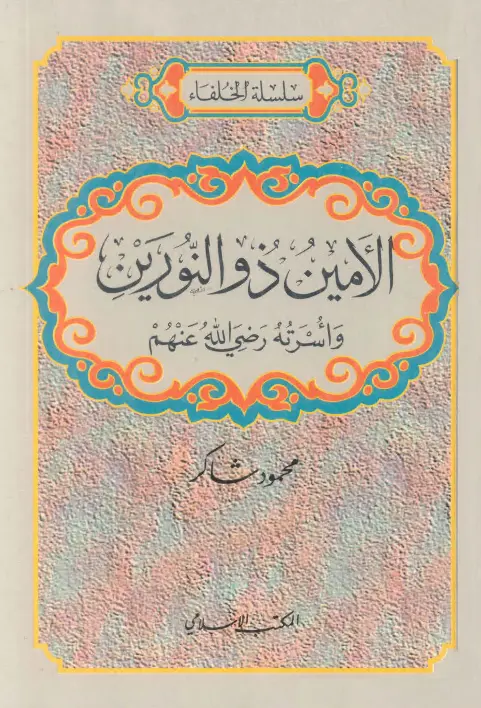 سلسلة الخلفاء
الأمينُ ذُو النُّورَينِ
وَأُسْرَتُهُ رَضِيَ اللهُ عَنْهُمْ
محمود شاكر
المكتب الإسلامي